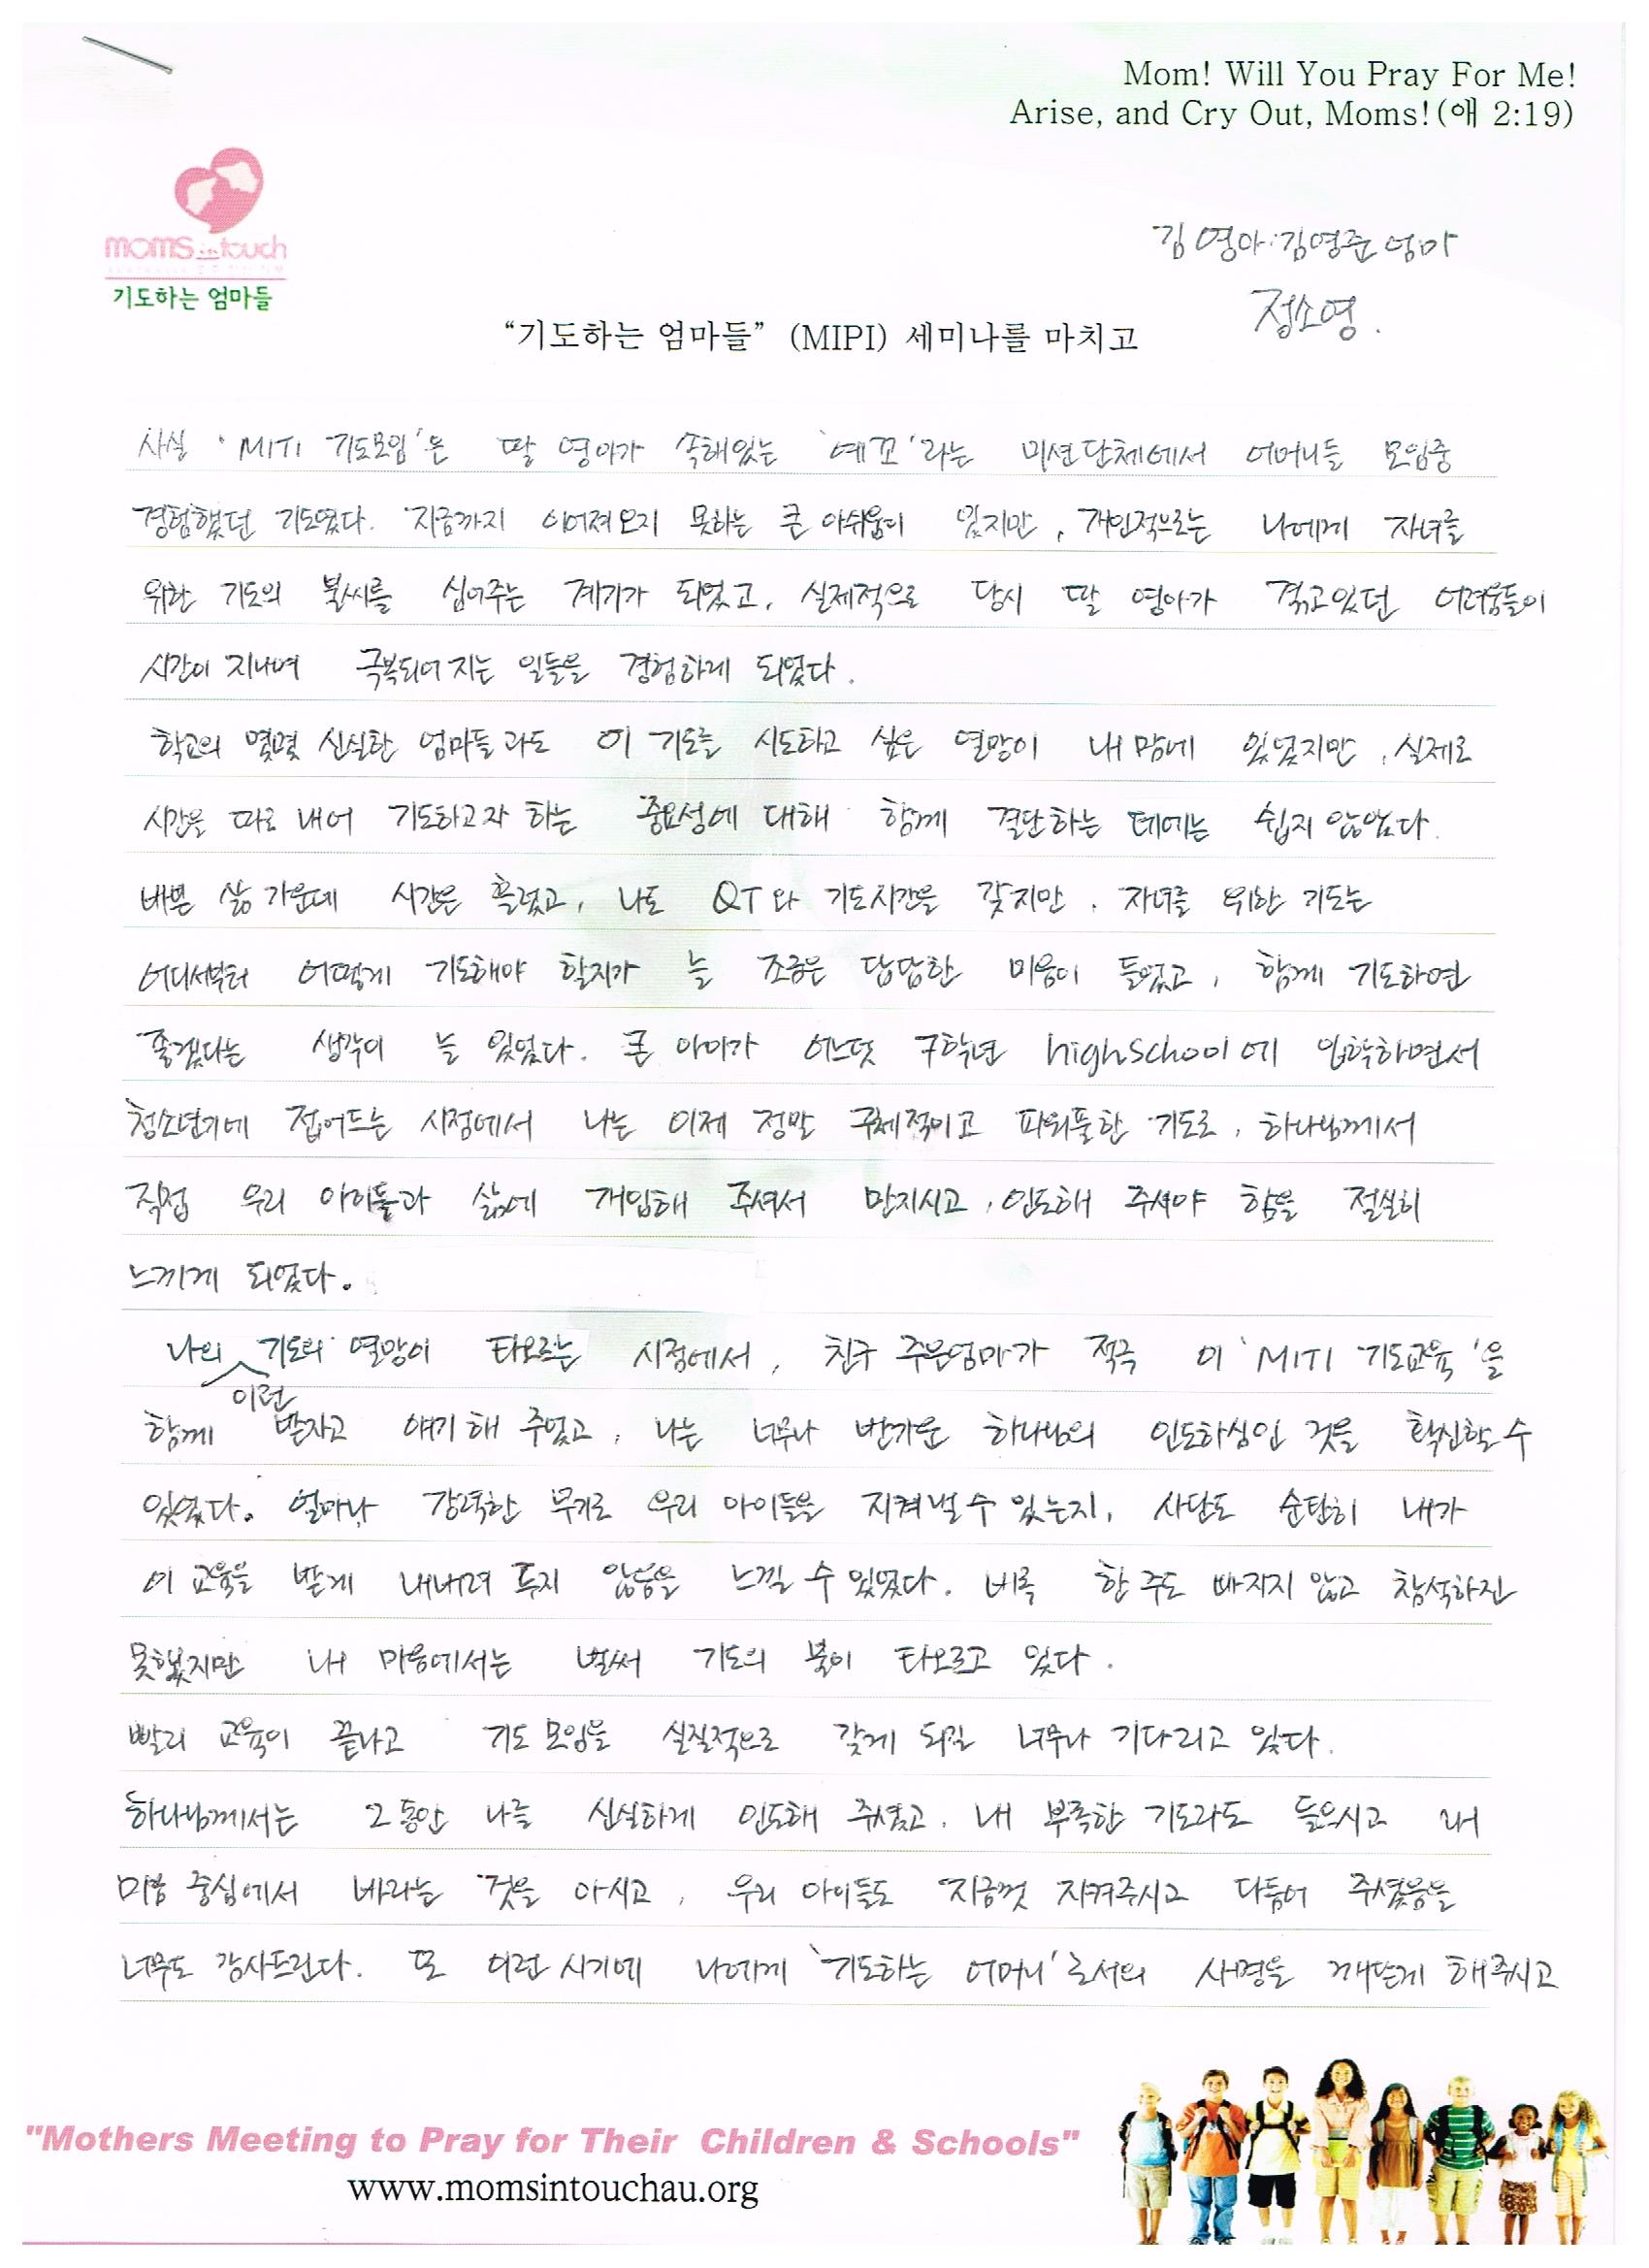 Mom! Will You Pray For Me!
Arise, and Cry Out, Moms!(애 2:19)
moms in touch
기도하는 엄마들
김영아·김영준 엄마
정소영.
“기도하는 엄마들” (MIPI) 세미나를 마치고
사실 'MITI 기도모임'은 딸 영아가 속해있는 '예꼬'라는 미션단체에서 어머니들 모임중
경험했던 기도였다. 지금까지 이어져오지 못하는 큰 아쉬움이 있지만, 개인적으로는 나에게 자녀를
위한 기도의 불씨를 심어주는 계기가 되었고, 실제적으로 당시 딸 영아가 겪고있던 어려움들이
시간이 지나며 극복되어 지는 일들을 경험하게 되었다.
학교의 몇몇 신실한 엄마들과도 이 기도를 시도하고 싶은 열망이 내 맘에 있었지만, 실제로
시간을 따로 내어 기도하고자 하는 중요성에 대해 함께 결단하는 데에는 쉽지 않았다.
바쁜 삶 가운데 시간은 흘렀고, 나도 QT와 기도시간을 갖지만, 자녀를 위한 기도는
어디서부터 어떻게 기도해야 할지가 늘 조금은 답답한 마음이 들었고, 함께 기도하면
좋겠다는 생각이 늘 있었다. 큰 아이가 어느덧 7학년 highschool에 입학하면서
청소년기에 접어드는 시점에서 나는 이제 정말 구체적이고 파워풀한 기도로, 하나님께서
직접 우리 아이들과 삶에 개입해 주셔서 만지시고, 인도해 주셔야 함을 절실히
느끼게 되었다.
나의 기도의 열망이 타오르는 시점에서, 친구 주은엄마가 적극 이 'MITI 기도교육'을
이런
함께 받자고 얘기해 주었고, 나는 너무나 반가운 하나님의 인도하심인 것을 확신할 수
있었다. 얼마나 강력한 무기로 우리 아이들을 지켜낼 수 있는지, 사단도 순탄히 내가
이 교육을 받게 내버려 두지 않음을 느낄 수 있었다. 비록 한 주도 빠지지 않고 참석하진
못했지만 내 마음에서는 벌써 기도의 불이 타오르고 있다.
빨리 교육이 끝나고 기도 모임을 실질적으로 갖게 되길 너무나 기다리고 있다.
하나님께서는 그동안 나를 신실하게 인도해 주셨고, 내 부족한 기도라도 들으시고 내
마음 중심에서 바라는 것을 아시고, 우리 아이들도 지금껏 지켜주시고 다듬어 주셨음을
너무도 감사드린다. 또 이런 시기에 나에게 '기도하는 어머니'로서의 사명을 깨닫게 해주시고
"Mothers Meeting to Pray for Their Children & Schools"
www.momsintouchau.org